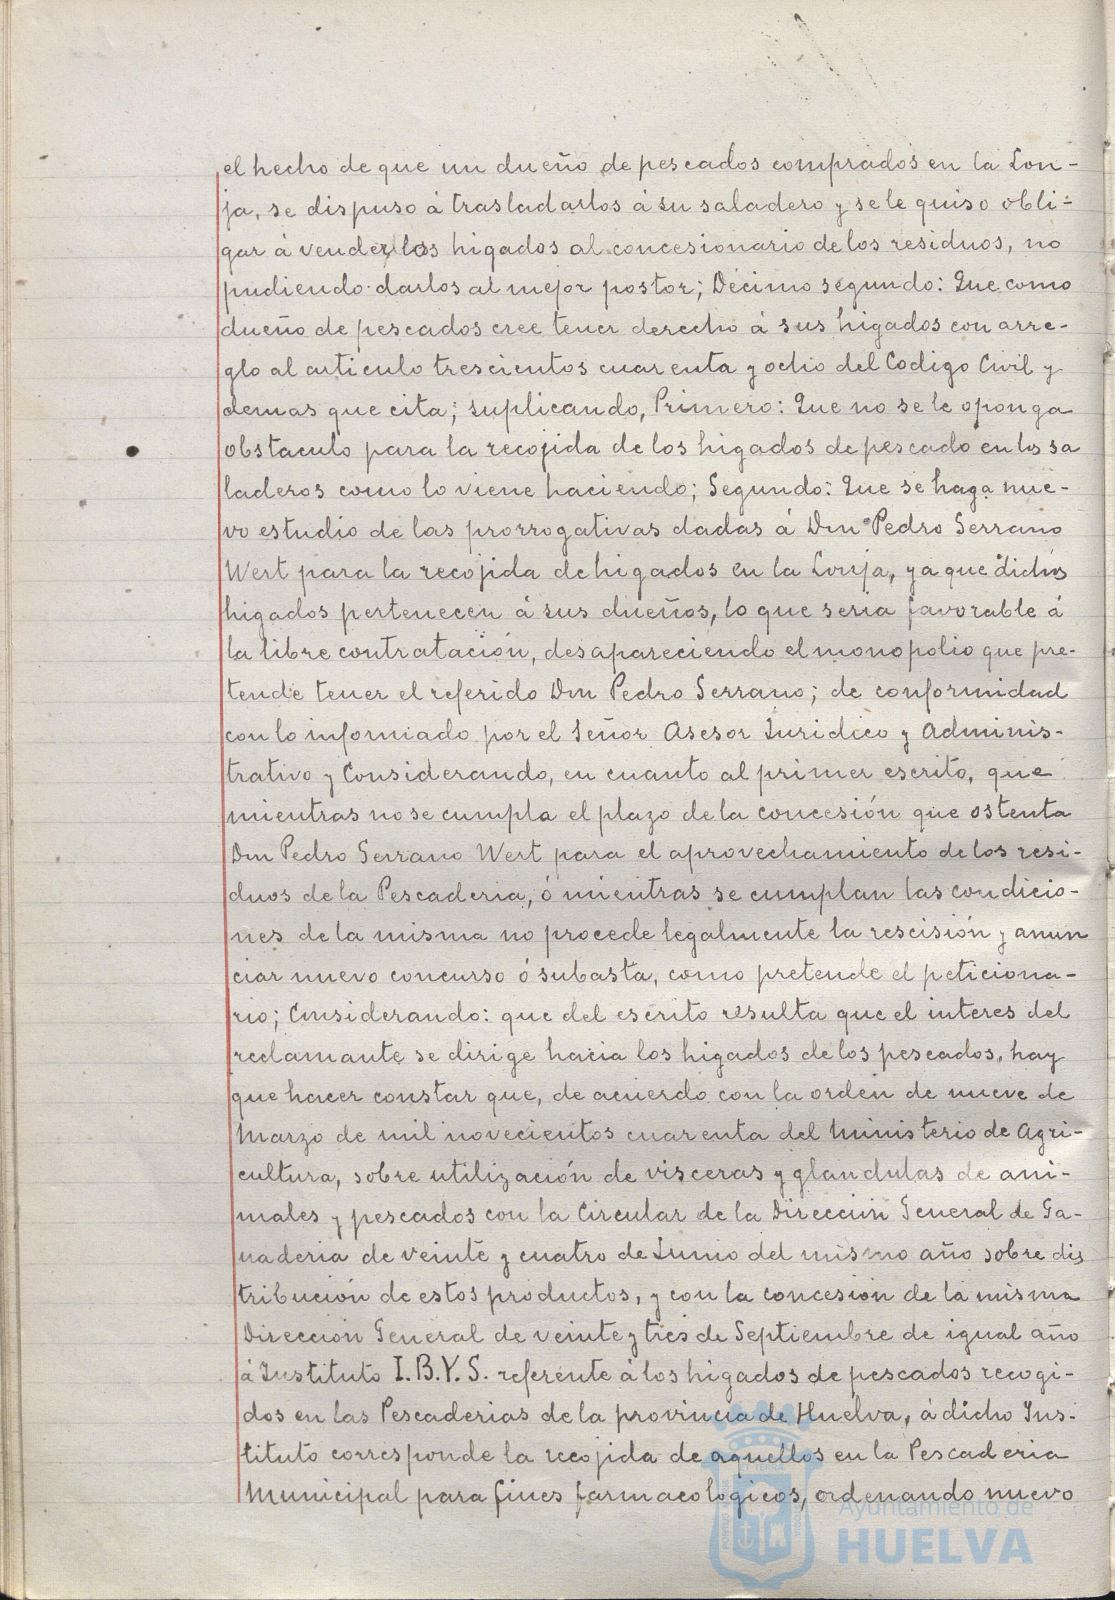 el hecho de que un dueño de pescados comprados en la Lon-
ja, se dispuso á trasladarlos á su saladero y se le quiso obli-
gar á vender los higados al concesionario de los residuos, no
pudiendo darlos al mejor postor; Décimo segundo: Que como
dueño de pescados cree tener derecho á sus higados con arre-
glo al articulo trescientos cuarenta y ocho del Codigo Civil y
demas que cita; suplicando, Primero: Que no se le oponga
obstaculo para la recojida de los higados de pescado en los sa
laderos como lo viene haciendo; Segundo: Que se haga nue-
vo estudio de las prorrogativas dadas á Don Pedro Serrano
Wert para la recojida de higados en la Lonja, ya que dichos
higados pertenecen á sus dueños, lo que seria favorable á
la libre contratación, desapareciendo el monopolio que pre-
tende tener el referido Don Pedro Serrano; de conformidad
con lo informado por el Señor Asesor Juridico y Adminis-
trativo y Considerando, en cuanto al primer escrito, que
mientras no se cumpla el plazo de la concesión que ostenta
Don Pedro Serrano Wert para el aprovechamiento de los resi-
duos de la Pescaderia, ó mientras se cumplan las condicio-
nes de la misma no procede legalmente la rescisión y anun
ciar nuevo concurso ó subasta, como pretende el peticiona-
rio; Considerando: que del escrito resulta que el interes del
reclamante se dirige hacia los higados de los pescados, hay
que hacer constar que, de acuerdo con la orden de nueve de
Marzo de mil novecientos cuarenta del Ministerio de Agri-
cultura, sobre utilización de visceras y glandulas de ani-
males y pescados con la Circular de la Dirección General de Ga-
naderia de veinte y cuatro de Junio del mismo año sobre dis
tribución de estos productos, y con la concesión de la misma
Dirección General de veinte y tres de Septiembre de igual año
á Instituto I.B.Y.S. referente á los higados de pescados recogi-
dos en las Pescaderias de la provincia de Huelva, á dicho Ins-
tituto corresponde la recojida de aquellos en la Pescaderia
Municipal para fines farmacologicos, ordenando nuevo
Ayuntamiento de
HUELVA